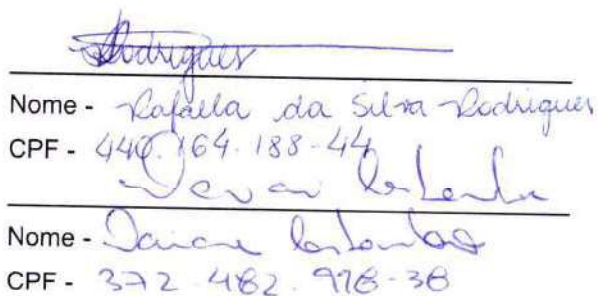 Rodrigues
Nome - Rafaella da Silva Rodrigues
CPF - 440.164.188-44
Nome - Daiane
CPF - 372.482.978-38